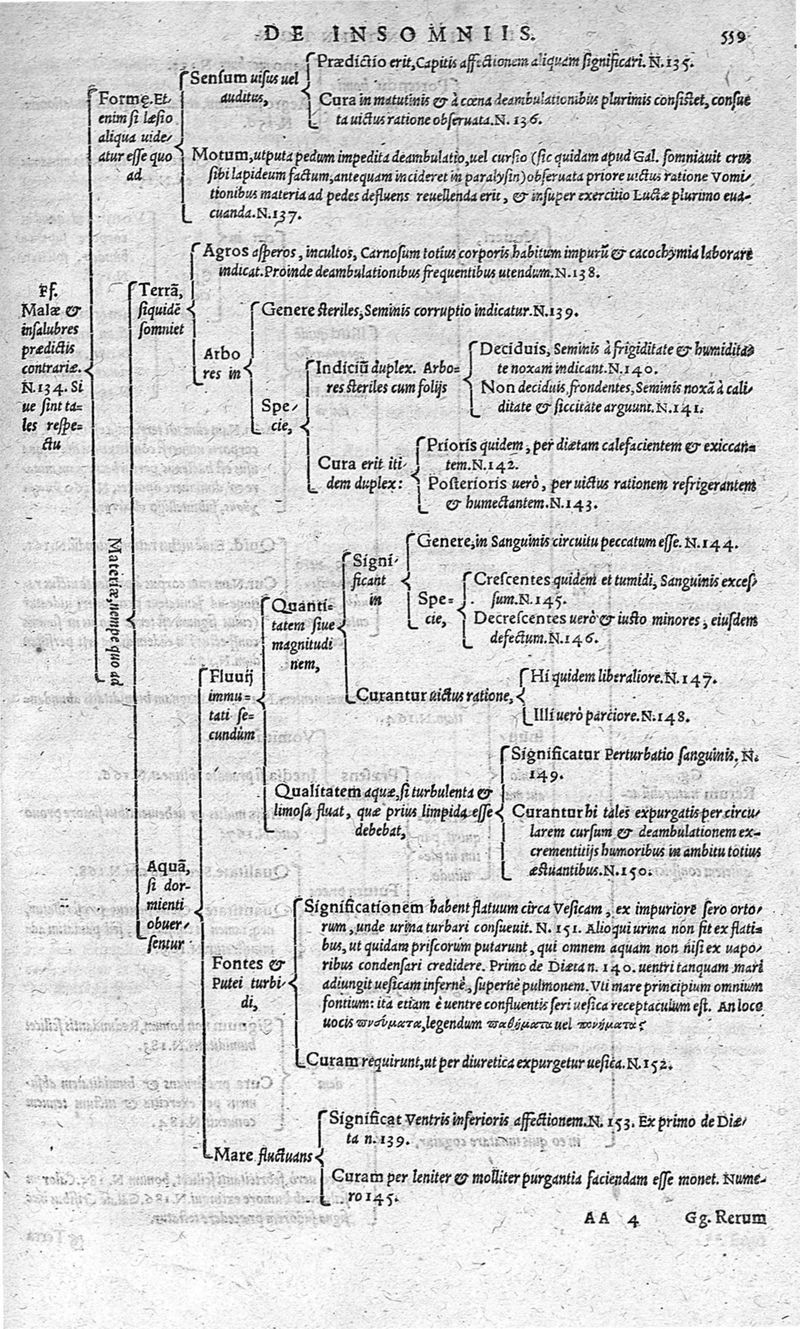 DE INSOMNIIS. 559
Ff.
Malæ &
insalubres
prædictis
contrariæ.
N.134. Si
ue sint ta-
les respe-
ctu
Formę. Et-
enim si læsio
aliqua uide-
atur esse quo
ad
Sensum uisus uel
auditus,
Prædictio erit, Capitis affectionem aliquam significari. N.135.
Cura in matutinis & à cœna deambulationibus plurimis consistet, consue
ta uictus ratione obseruata. N. 136.
Motum, utputa pedum impedita deambulatio, uel cursio (sic quidam apud Gal. somniauit crus
sibi lapideum factum, antequam incideret in paralysin) obseruata priore uictus ratione Vomi-
tionibus materia ad pedes defluens reuellenda erit, & insuper exercitio Luctæ plurimo eua-
cuanda. N.137.
Materiæ, nempe quo ad
Terrã,
siquidē
somniet
Agros asperos, incultos, Carnosum totius corporis habitum impurū & cacochymia laborare
indicat. Proinde deambulationibus frequentibus utendum. N.138.
Arbo
res in
Genere steriles, Seminis corruptio indicatur. N.139.
Spe-
cie,
Indiciū duplex. Arbo-
res steriles cum folijs
Deciduis, Seminis à frigiditate & humidita-
te noxam indicant. N.140.
Non deciduis, frondentes, Seminis noxã à cali-
ditate & siccitate arguunt. N.141.
Cura erit iti-
dem duplex:
Prioris quidem, per diætam calefacientem & exiccan-
tem. N.142.
Posterioris uerò, per uictus rationem refrigerantem
& humectantem. N.143.
Aquã,
si dor-
mienti
obuer-
sentur
Fluuij
immu-
tati se-
cundùm
Quanti-
tatem siue
magnitudi
nem,
Signi-
ficant
in
Genere, in Sanguinis circuitu peccatum esse. N.144.
Spe-
cie,
Crescentes quidem et tumidi, Sanguinis exces-
sum. N.145.
Decrescentes uerò & iusto minores, eiusdem
defectum. N.146.
Curantur uictus ratione,
Hi quidem liberaliore. N.147.
Illi uerò parciore. N.148.
Qualitatem aquæ, si turbulenta &
limosa fluat, quæ prius limpida esse
debebat,
Significatur Perturbatio sanguinis. N.
149.
Curantur hi tales expurgatis per circu-
larem cursum & deambulationem ex-
crementitijs humoribus in ambitu totius
æstuantibus. N.150.
Fontes &
Putei turbi-
di,
Significationem habent flatuum circa Vesicam, ex impuriore sero orto-
rum, unde urina turbari consueuit. N. 151. Alioqui urina non fit ex flati-
bus, ut quidam priscorum putarunt, qui omnem aquam non nisi ex uapo-
ribus condensari credidere. Primo de Diæta n. 140. uentri tanquam mari
adiungit uesicam infernè, supernè pulmonem. Vti mare principium omnium
fontium: ita etiam è uentre confluentis seri uesica receptaculum est. An loco
uocis πνεύματα, legendum παθήματα uel πονήματα?
Curam requirunt, ut per diuretica expurgetur uesica. N.152.
Mare fluctuans
Significat Ventris inferioris affectionem. N. 153. Ex primo de Diæ-
ta n. 139.
Curam per leniter & molliter purgantia faciendam esse monet. Nume-
ro 145.
AA 4 Gg. Rerum